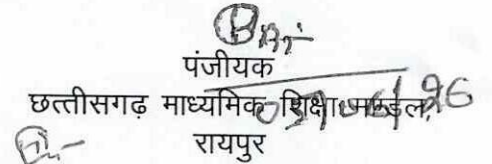 पंजीयक
छत्तीसगढ़ माध्यमिक शिक्षा मण्डल,
रायपुर